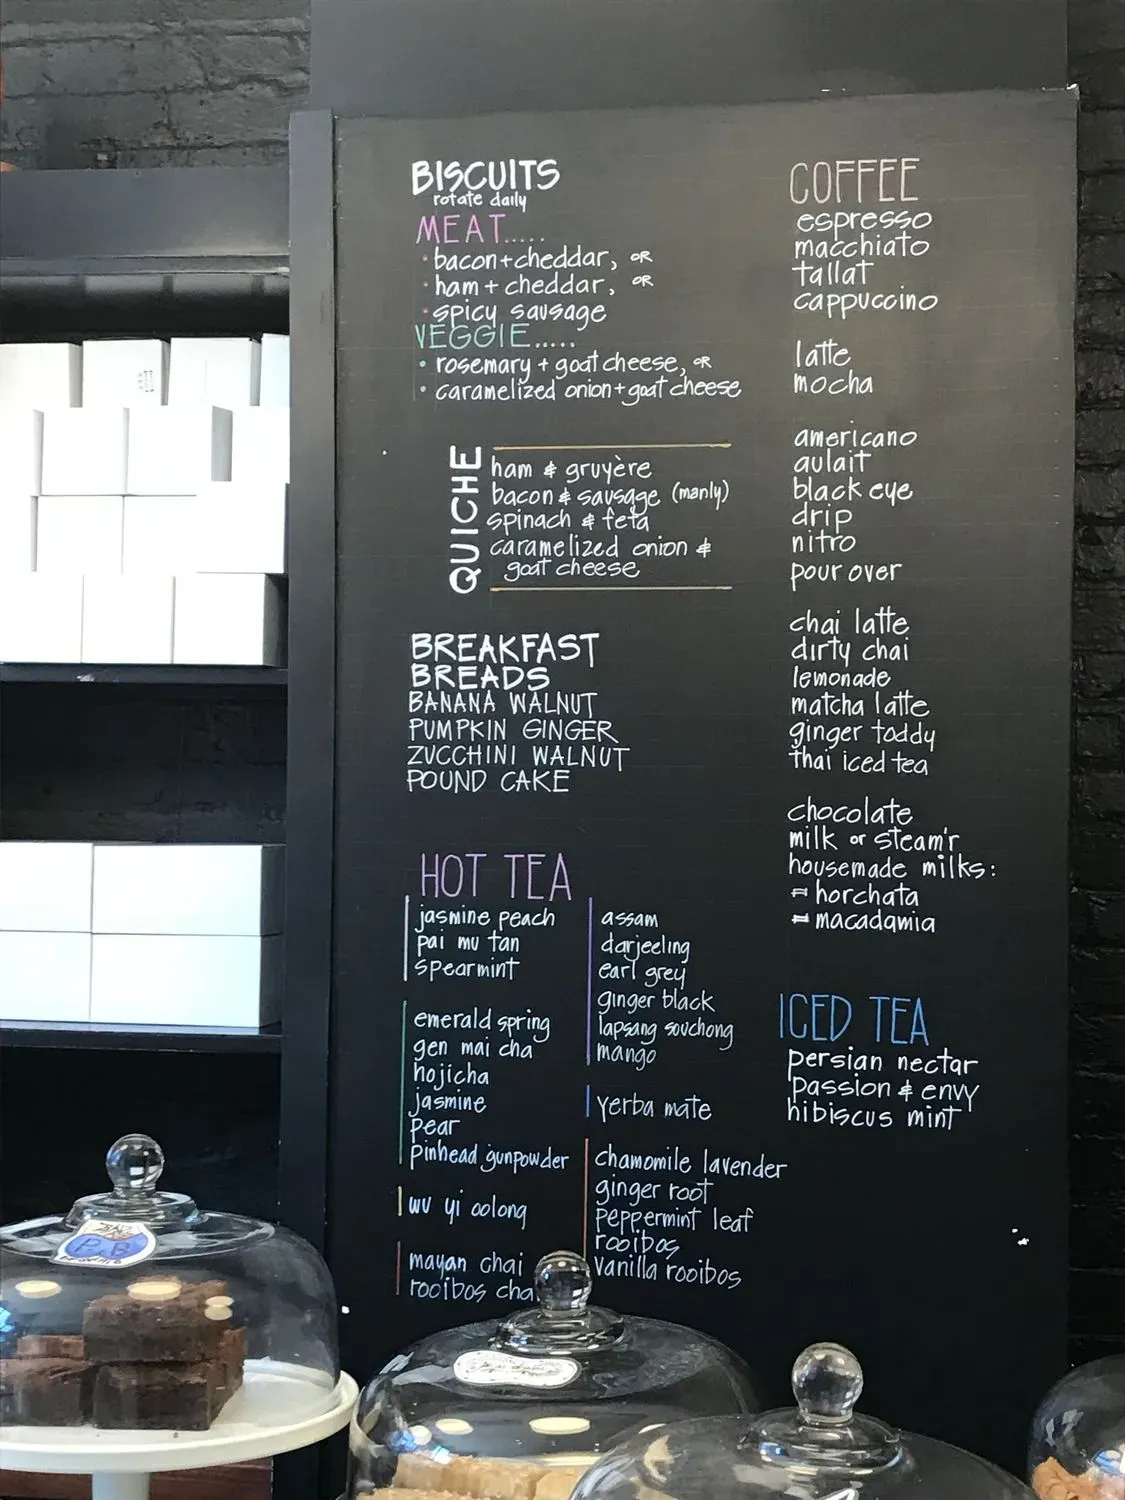 BISCUITS
rotate daily
MEAT.....
• bacon+cheddar, OR
• ham + cheddar, OR
• spicy sausage
VEGGIE.....
• rosemary + goat cheese, OR
• caramelized onion+goat cheese
QUICHE
ham & gruyère
bacon & sausage (manly)
spinach & feta
caramelized onion &
goat cheese
BREAKFAST
BREADS
BANANA WALNUT
PUMPKIN GINGER
ZUCCHINI WALNUT
POUND CAKE
HOT TEA
jasmine peach
pai mu tan
spearmint
emerald spring
gen mai cha
hojicha
jasmine
pear
pinhead gunpowder
wu yi oolong
mayan chai
rooibos cha
assam
darjeeling
earl grey
ginger black
lapsang souchong
mango
yerba mate
chamomile lavender
ginger root
peppermint leaf
rooibos
vanilla rooibos
COFFEE
espresso
macchiato
tallat
cappuccino
latte
mocha
americano
aulait
black eye
drip
nitro
pour over
chai latte
dirty chai
lemonade
matcha latte
ginger toddy
thai iced tea
chocolate
milk or steam'r
housemade milks:
= horchata
= macadamia
ICED TEA
persian nectar
passion & envy
hibiscus mint